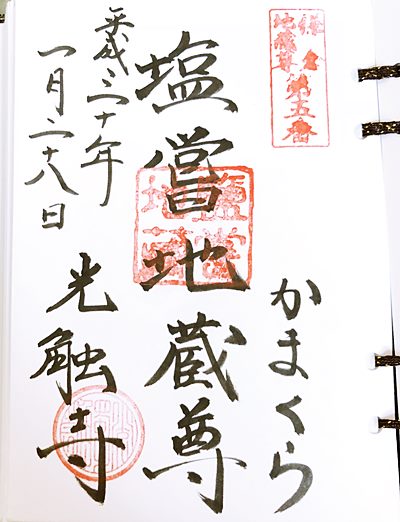 鎌倉
地蔵尊第五番
かまくら
塩嘗地蔵尊
平成三十年
一月二十八日
光触寺
塩嘗地蔵